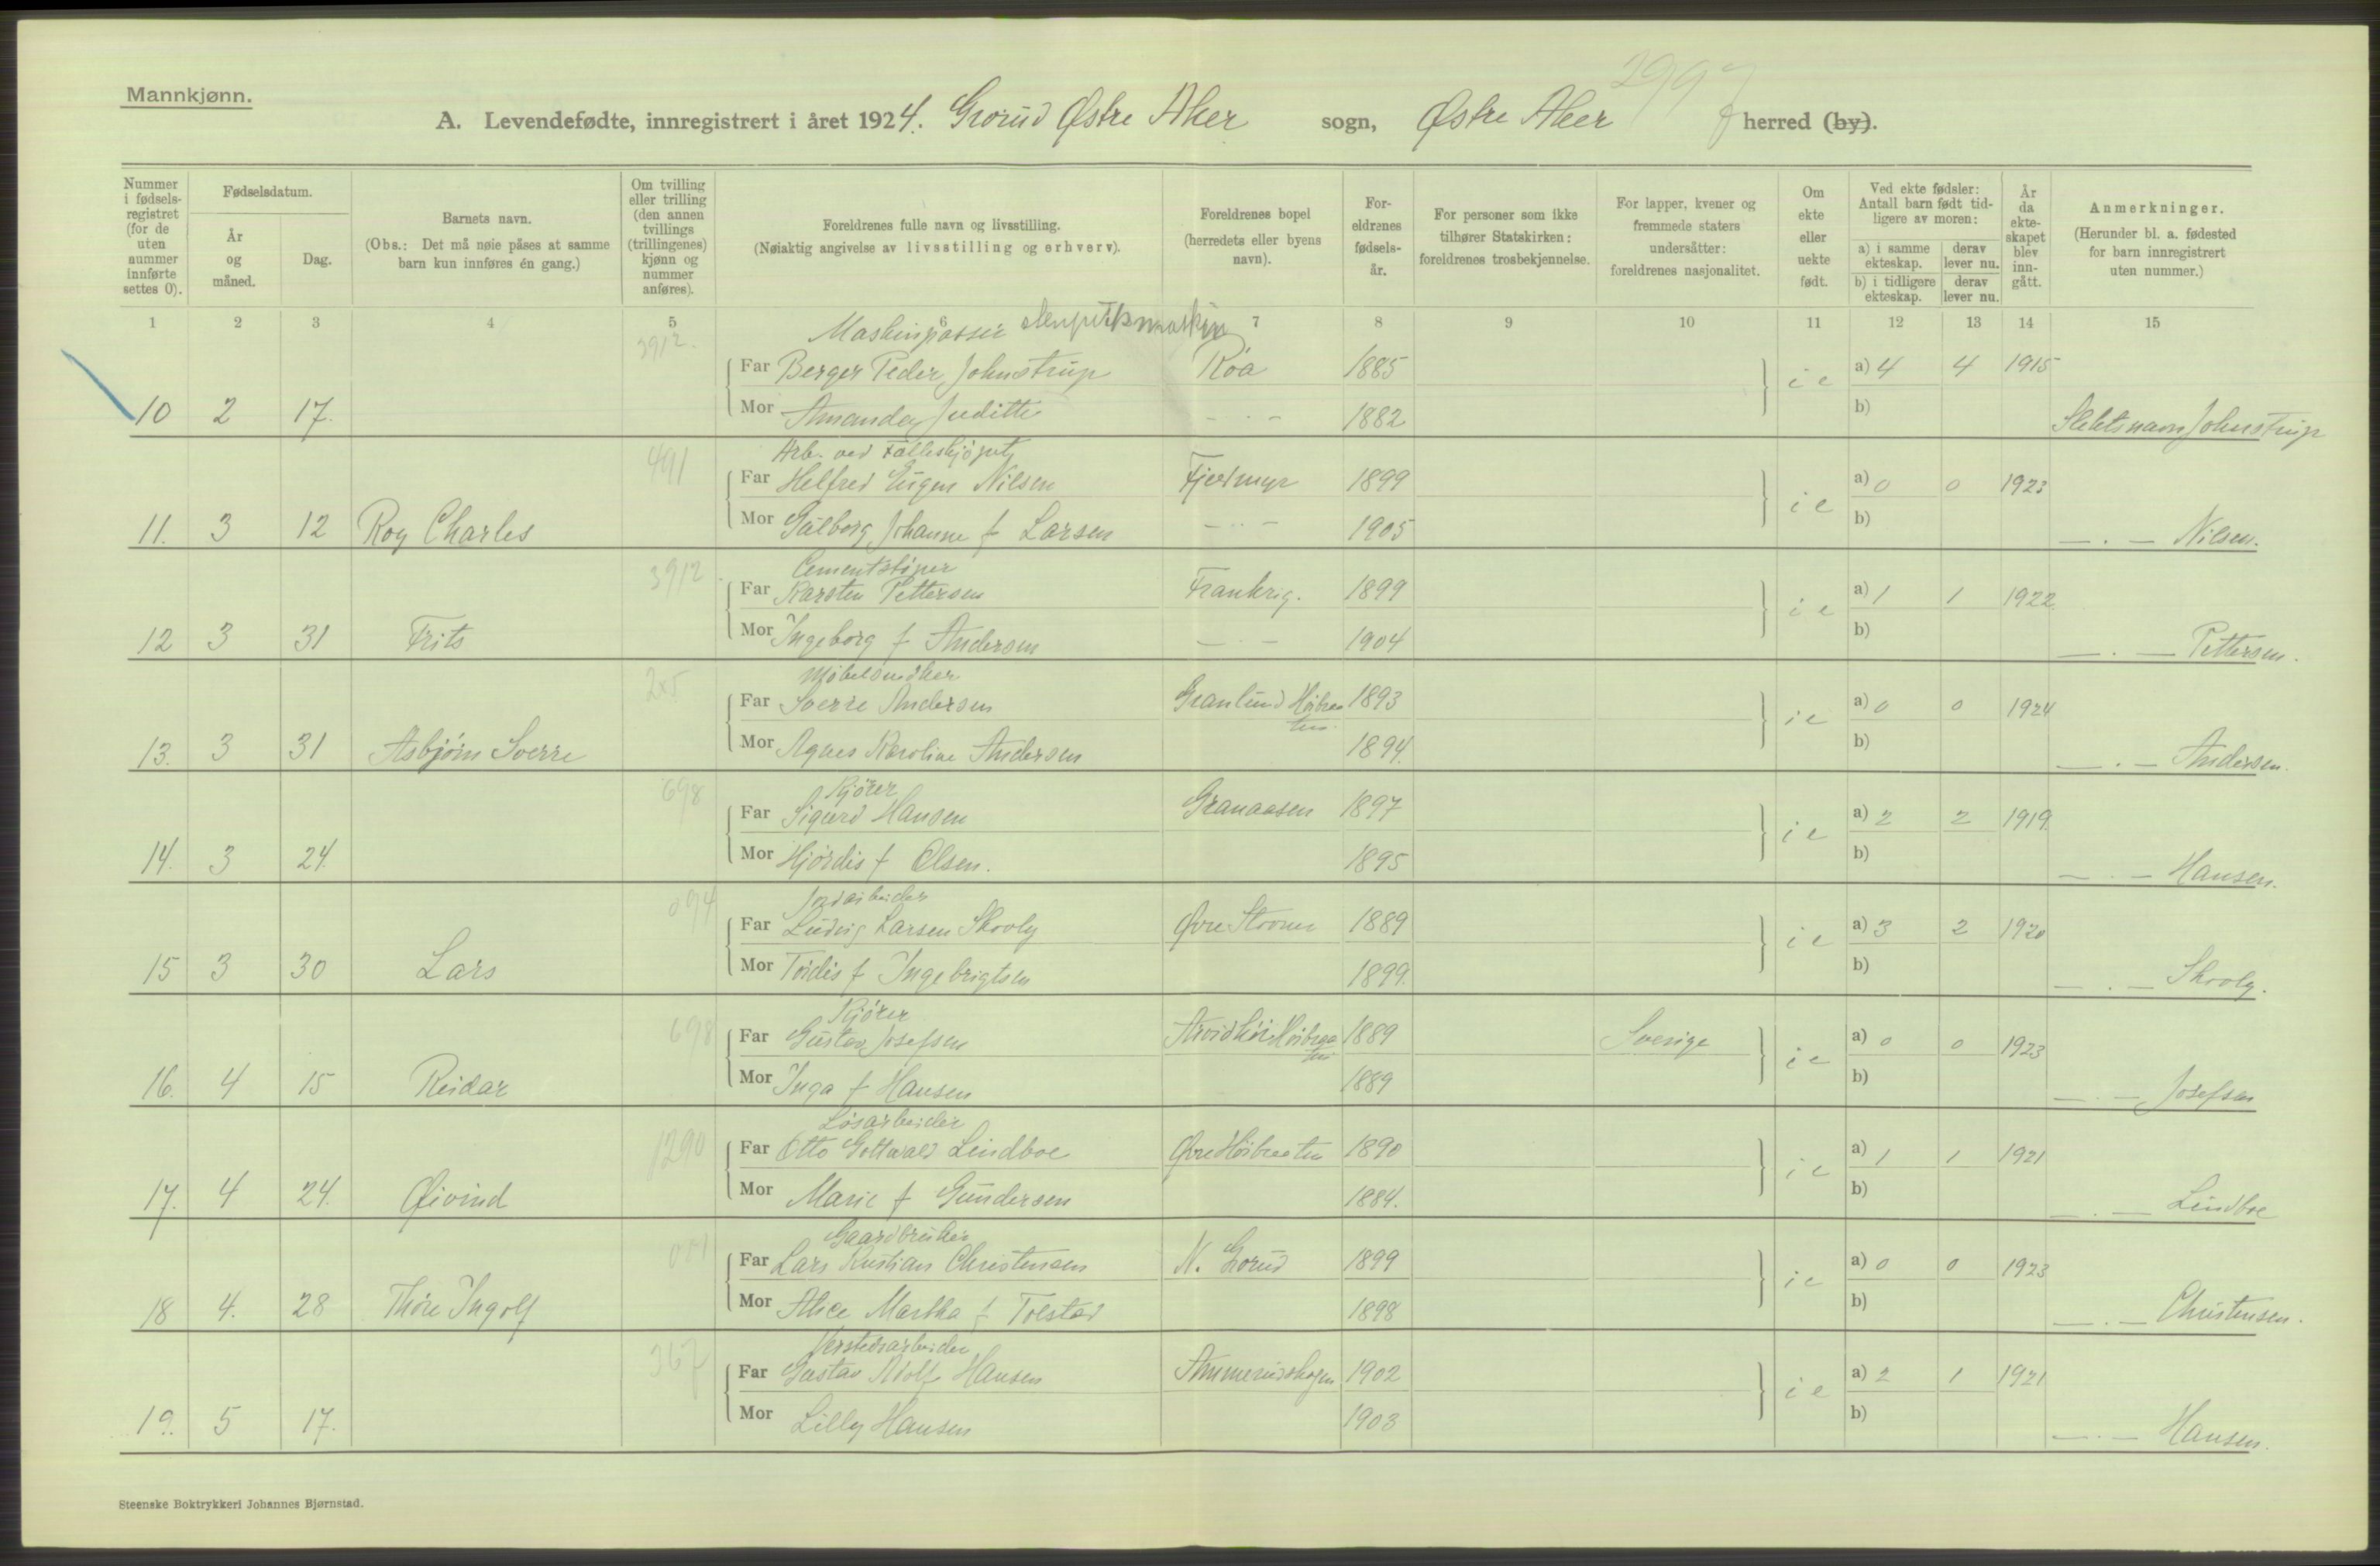 Mannkjønn.
2997
A. Levendefødte, innregistrert i året 1924. Grorud Østre Aker sogn, Østre Aker herred (by).
Nummer i fødselsregistret (for de uten nummer innførte settes 0).
Fødselsdatum.
År og måned.
Dag.
Barnets navn.
(Obs.: Det må nøie påses at samme barn kun innføres én gang.)
Om tvilling eller trilling (den annen tvillings (trillingenes) kjønn og nummer anføres).
Foreldrenes fulle navn og livsstilling.
(Nøiaktig angivelse av livsstilling og erhverv).
Foreldrenes bopel (herredets eller byens navn).
Foreldrenes fødselsår.
For personer som ikke tilhører Statskirken: foreldrenes trosbekjennelse.
For lapper, kvener og fremmede staters undersåtter: foreldrenes nasjonalitet.
Om ekte eller uekte født.
Ved ekte fødsler: Antall barn født tidligere av moren:
a) i samme ekteskap. derav lever nu.
b) i tidligere ekteskap. derav lever nu.
År da ekteskapet blev inngått.
Anmerkninger.
(Herunder bl. a. fødested for barn innregistrert uten nummer.)
1 2 3 4 5 6 7 8 9 10 11 12 13 14 15
3912. Maskinpasser
Far Berger Peder Johnstrup Roa 1885 a) 4 4 1915
10 2 17. Mor Amanda Juditte — . — 1882 i e b) Slektsnavn Johnstrup
491 Arb. ved Fælleskjøpet
Far Helfred Eugen Nilsen 1899 a) 0 0 1923
11. 3 12 Roy Charles Mor Johanne f Larsen — . — 1905 i e b) — . — Nilsen.
3912 Cementstøper
Far Karsten Pettersen Frankrig. 1899 a) 1 1 1922
12 3 31 Frits Mor Ingeborg f Andersen — . — 1904 i e b) — . — Pettersen.
Møbelsnedker
Far Sverre Andersen Granlund Høibraaten 1893 a) 0 0 1924
13. 3 31 Asbjørn Sverre Mor Agnes Karoline Andersen 1894. i e b) — . — Andersen.
698 Kjører
Far Sigurd Hansen Granaasen 1897 a) 2 2 1919.
14. 3 24. Mor Hjørdis f Olsen. 1895 i e b) — . — Hansen.
094 Jordarbeider
Far Ludvig Larsen Skovly Øvre 1889 a) 3 2 1920
15 3 30 Lars Mor Tordis f Ingebrigtsen 1899. i e b) — . — Skovly.
698 Kjører
Far Gustav Josefsen Høibraaten 1889 Sverige a) 0 0 1923
16. 4 15 Reidar Mor Inga f Hansen 1889 i e b) — . — Josefsen
1290 Løsarbeider
Far Otto Gottwald Lindboe Øvre Høibraaten 1890 a) 1 1 1921
17. 4 24. Øivind Mor Marie f Gundersen 1884. i e b) — . — Lindboe
001 Gaardbruker
Far Lars Kristian Christensen N. Grorud 1899 a) 0 0 1923
18 4. 28 Thore Ingolf Mor Alice Martha f Tolstad 1898 i e b) — . — Christensen.
367 Verkstedsarbeider
Far Gustav Adolf Hansen Ammerudskogen 1902 a) 2 1 1921
19. 5 17. Mor Lilly Hansen 1903 i e b) — . — Hansen.
Steenske Boktrykkeri Johannes Bjørnstad.